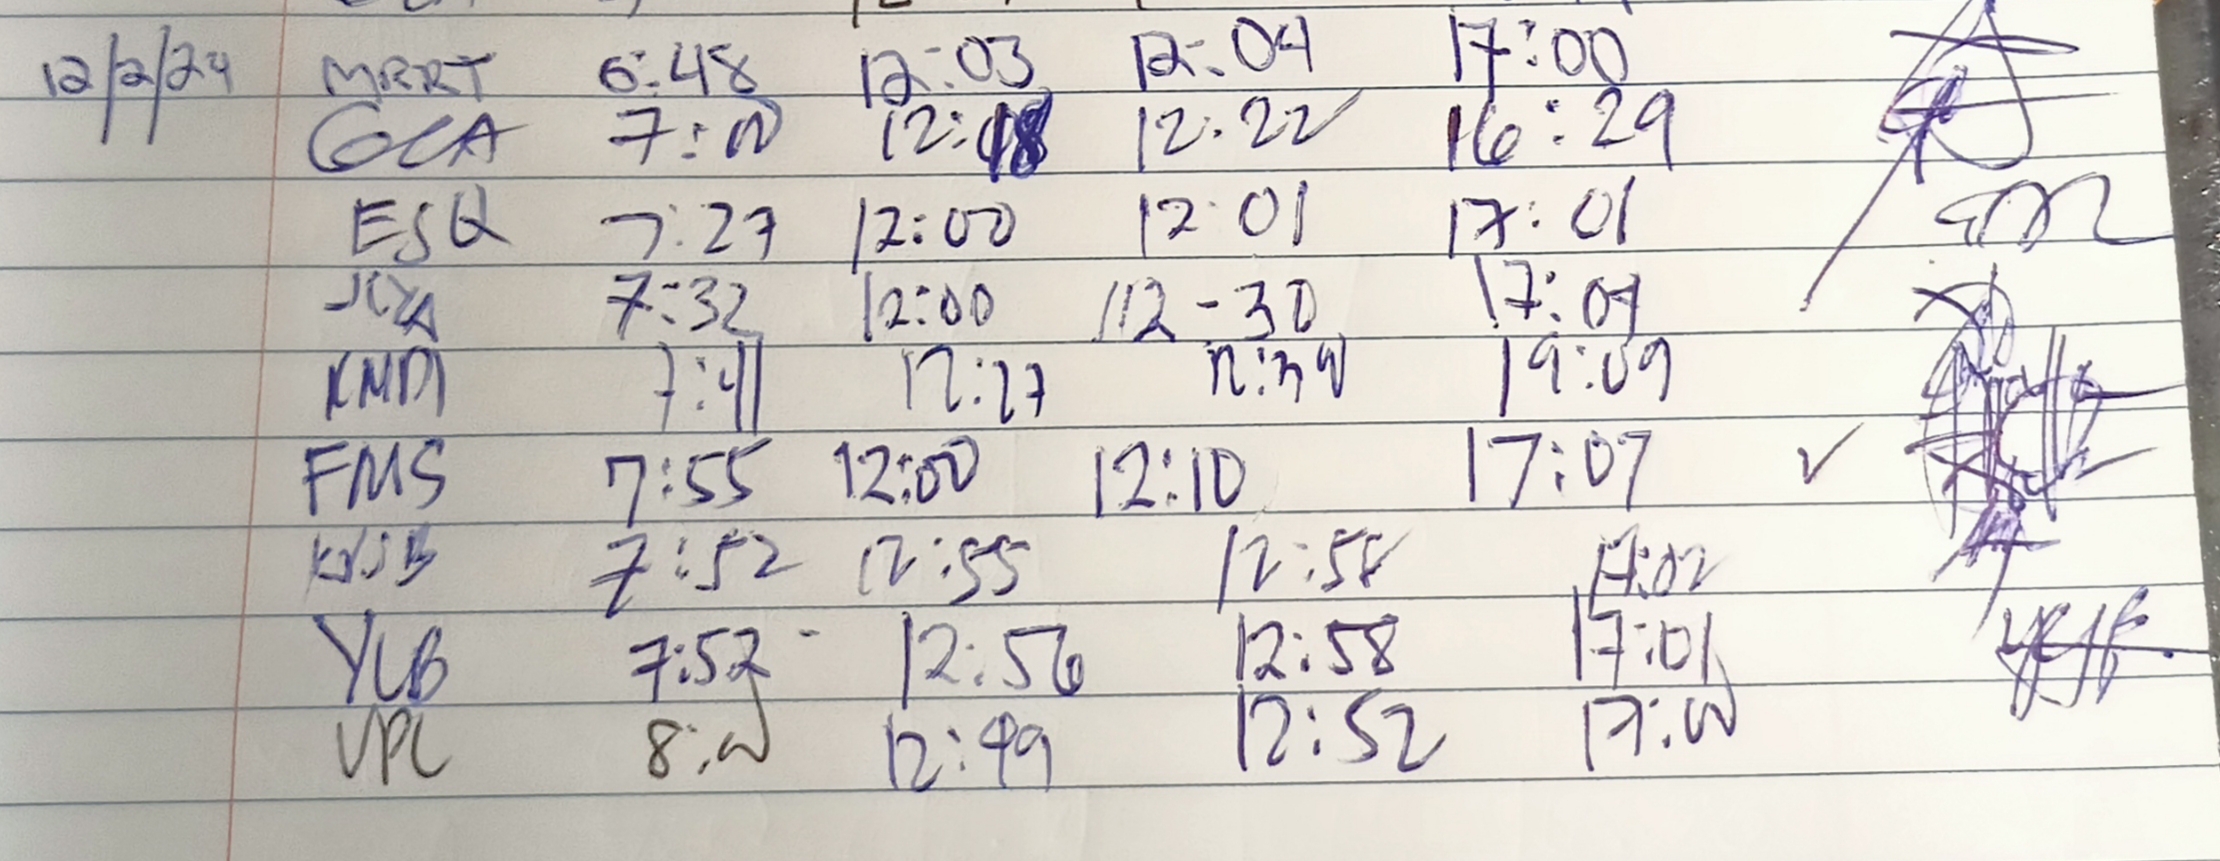 12/2/24 MRRT 6:48 12:03 12:04 17:00
GCA 7:00 12:18 12:22 16:29
ESQ 7:27 12:00 12:01 17:01
7:32 12:00 12-30 17:04
KMM 7:41 12:27 12:30 19:09
FMS 7:55 12:00 12:10 17:07 ✓
7:52 12:55 12:58 17:02
YLB 7:52 - 12:56 12:58 17:01
VPL 8:00 12:49 12:52 17:00